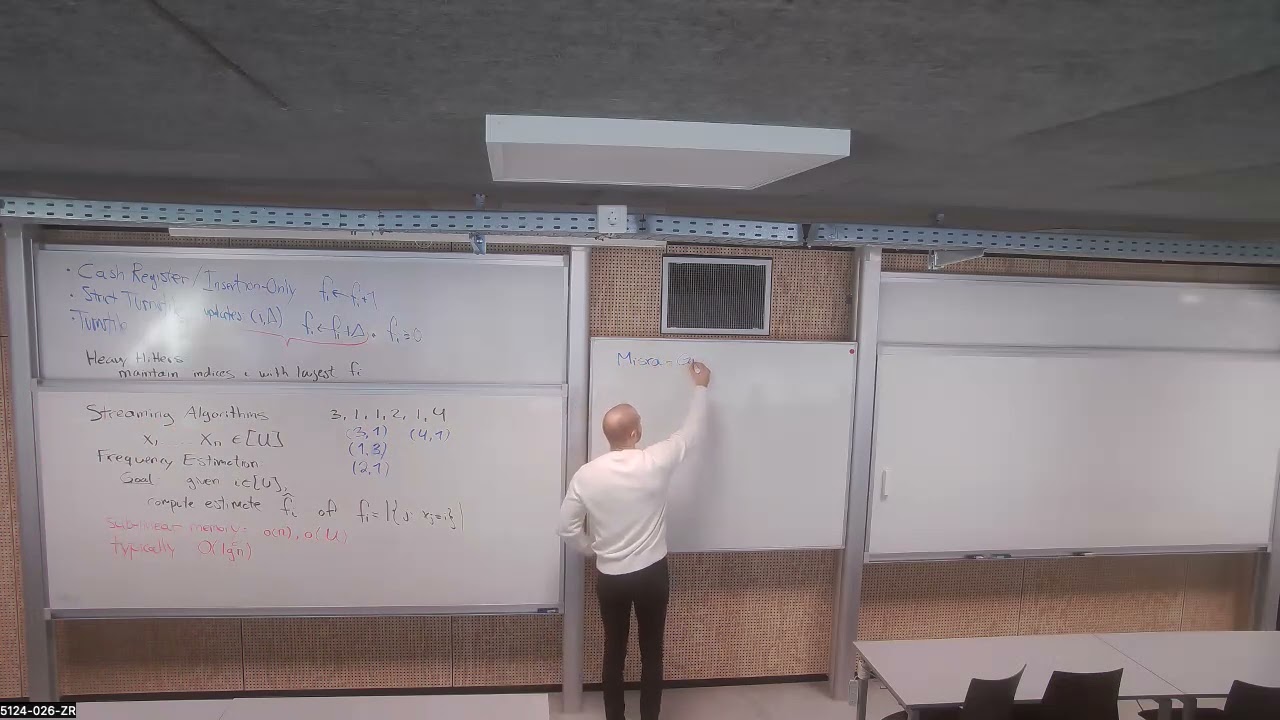 · Cash Register/Insertion-Only fᵢ←fᵢ+1
· Strict Turnstile updates (i,Δ) fᵢ←fᵢ+Δ · fᵢ≥0
· Turnstile
Heavy Hitters
maintain indices i with largest fᵢ
Streaming Algorithms 3, 1, 1, 2, 1, 4
x₁ ... xₙ ∈[U] (3,1) (4,1)
(1,3)
Frequency Estimation: (2,1)
Goal given i∈[U],
compute estimate f̂ᵢ of fᵢ=|{j: xⱼ=i}|
Sub-linear memory: o(n), o(U)
typically
Misra-
5124-026-ZR